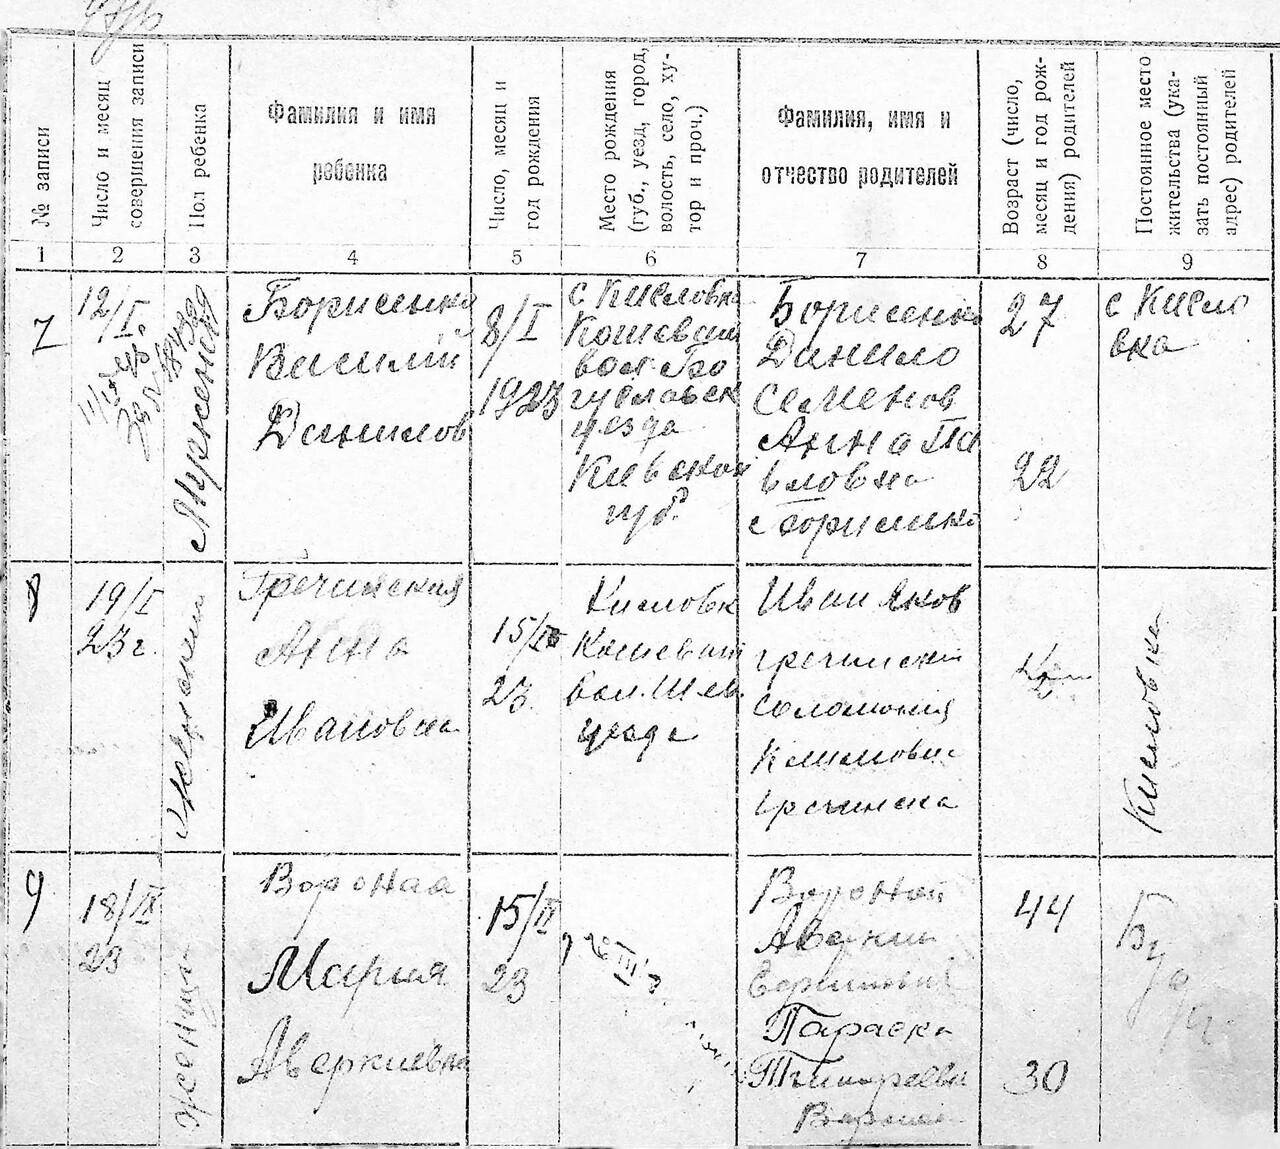 № записи
Число и месяц
совершения записи
Пол ребенка
Фамилия и имя
ребенка
Число, месяц и
год рождения
Место рождения
(губ., уезд, город,
волость, село, ху-
тор и проч.)
Фамилия, имя и
отчество родителей
Возраст (число,
месяц и год рож-
дения) родителей
Постоянное место
жительства (ука-
зать постоянный
адрес) родителей
1 2 3 4 5 6 7 8 9
7
12/I
Мужеский
Борисенко
Василий
Данилов
8/I
1923
с Кисловка
Кошевск
вол. Бо
гуславск
уезда
Киевской
губ.
Борисенко
Данило
Семенов
Анна Па
вловна
Борисенко
27
22
с Кисло
вка
8
19/I
23 г.
Женский
Гречинская
Анна
Ивановна
15/I
23
Кисловк
Кошеват
вол.
уезда
Иван Яков
гречински
соломония
Климовна
гречинска
Кисловка
9
18/II
23
Женщин
Вороная
Мария
Аверкиевна
15/II
23
Вороной
Аверкий
Параска
Вороная
44
30
Буда